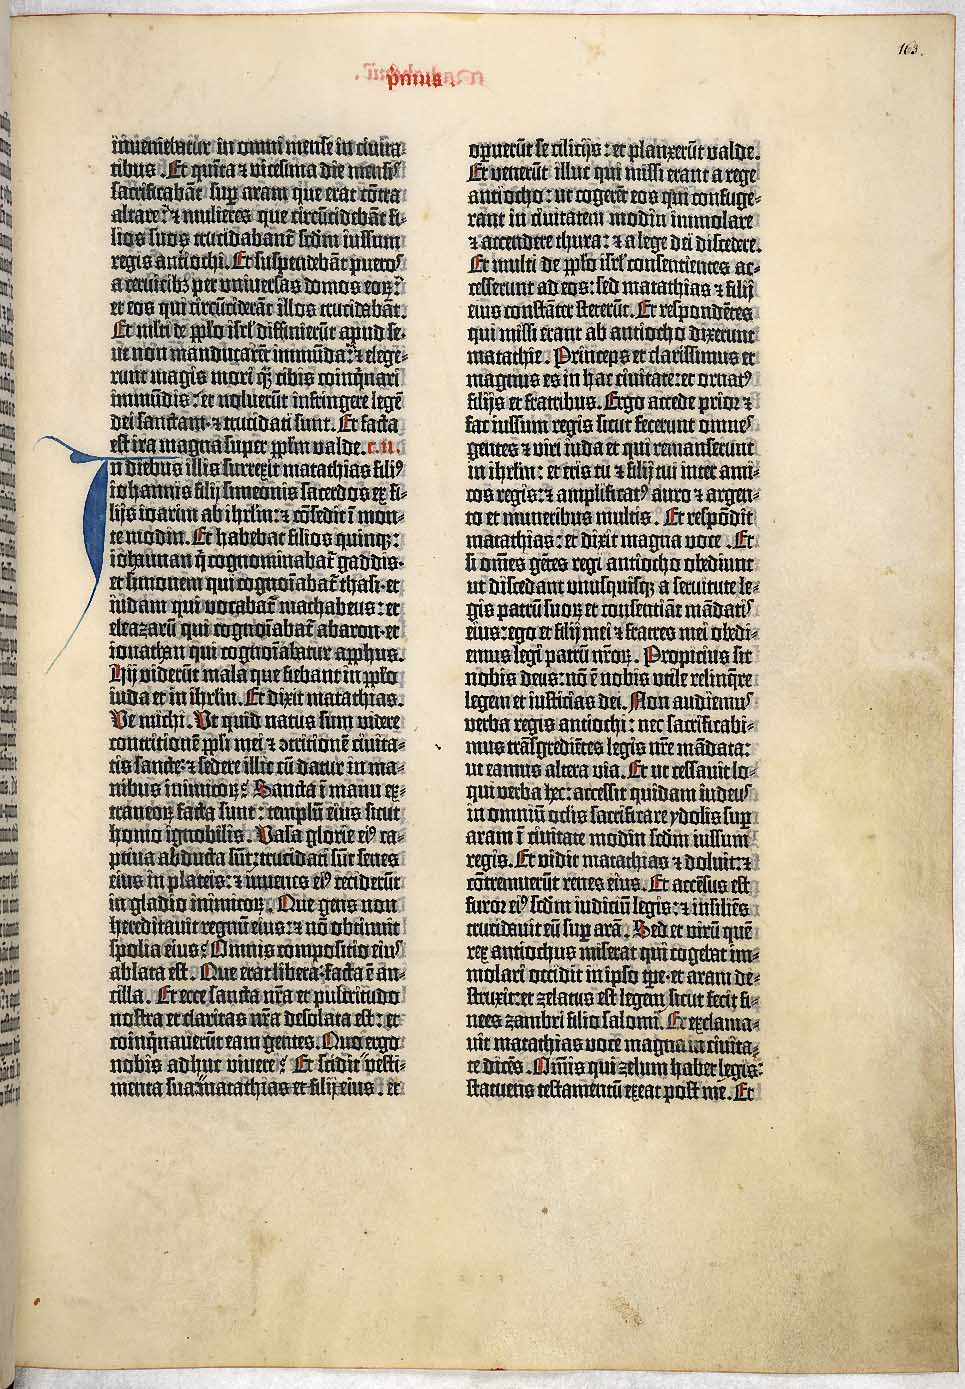 163.
primus.
inueniebatur in omni mense in ciuita⸗
tibus. Et quīta ⁊ vicesima die mensis
sacrificabāt sup aram que erat cōtra
altare: ⁊ mulieres que circūcidebāt fi⸗
lios suos trucidabant̄ scdm iussum
regis antiochi. Et suspendebāt pueros
a ceruicibꝫ per vniuersas domos eoꝝ:
et eos qui circūciderāt illos trucidabāt.
Et multi de pplo isrl' diffinierūt apud se·
ut non manducarēt immūda: ⁊ elege⸗
runt magis mori q̄ꝫ cibis coinq̄nari
immūdis: et noluerūt infringere legē
dei sanctam· ⁊ trucidati sunt. Et facta
est ira magna super pplm valde. c. ii.
In diebus illis surrexit matathias filiꝰ
iohannis filij simeonis sacerdos ex fi⸗
lijs ioarim ab ihrlm: ⁊ cōsedit ī mon⸗
te modin. Et habebat filios quinqꝫ:
iohannan q̄ cognominabat̄ gaddis·
et simonem qui cognoīabat̄ thasi· et
iudam qui vocabat̄ machabeus: et
eleazarū qui cognoīabat̄ abaron· et
ionathan qui cognoīabatur apphus.
Hij viderūt mala que fiebant in pplo
iuda et in ihrlm. Et dixit matathias.
Ve michi. Ut quid natus sum videre
contritionē ppli mei ⁊ ꝯtritionē ciuita⸗
tis sancte· ⁊ sedere illic cū datur in ma⸗
nibus inimicoꝝ? Sancta ī manu ex⸗
traneoꝝ facta sunt: templū eius sicut
homo ignobilis. Vasa glorie eiꝰ ca⸗
ptiua abducta sūt: trucidati sūt senes
eius in plateis: ⁊ iuuenes eiꝰ ceciderūt
in gladio inimicoꝝ. Que gens non
hereditauit regnū eius: ⁊ nō obtinuit
spolia eius? Omnis compositio eius
ablata est. Que erat libera· facta ē an⸗
cilla. Et ecce sancta nr̄a et pulcritudo
nostra et claritas nr̄a desolata est: et
coinq̄nauerūt eam gentes. Quo ergo
nobis adhuc viuere? Et scidit vesti⸗
menta sua matathias et filij eius. et
opuerūt se cilicijs: et planxerūt valde.
Et venerūt illuc qui missi erant a rege
antiocho: ut cogerēt eos qui confuge⸗
rant in ciuitatem modin immolare
⁊ accendere thura: ⁊ a lege dei discedere.
Et multi de pplo isrl' consentientes ac⸗
cesserunt ad eos: sed matathias ⁊ filij
eius constāter steterūt. Et respondētes
qui missi erant ab antiocho dixerunt
matathie. Princeps et clarissimus et
magnus es in hac ciuitate: et ornatꝰ
filijs et fratribus. Ergo accede prior ⁊
fac iussum regis sicut fecerunt omnes
gentes ⁊ viri iuda et qui remanserunt
in ihrlm: et eris tu ⁊ filij tui inter ami⸗
cos regis: ⁊ amplificatꝰ auro ⁊ argen⸗
to et muneribus multis. Et respōdit
matathias: et dixit magna voce. Et
si om̄es gētes regi antiocho obediunt
ut discedant unusquisqꝫ a seruitute le⸗
gis patrū suoꝝ et consentiāt mādatis
eius: ego et filij mei ⁊ fratres mei obedi⸗
emus legi patrū nr̄oꝝ. Propicius sit
nobis deus: nō ē nobis vtile relinq̄re
legem et iusticias dei. Non audiemus
verba regis antiochi: nec sacrificabi⸗
mus trāsgrediētes legis nr̄e mādata:
ut eamus altera via. Et ut cessauit lo⸗
qui verba hec: accessit quidam iudeus
in omniū oclis sacrificare ydolis sup
aram ī ciuitate modin scdm iussum
regis. Et vidit matathias ⁊ doluit: ⁊
cōtremuerūt renes eius. Et accēsus est
furor eiꝰ scdm iudiciū legis: ⁊ insiliēs
trucidauit eū sup arā. Sed et virū quē
rex antiochus miserat qui cogebat im⸗
molari occidit in ipso tp̄e· et aram de⸗
struxit: et zelatus est legem sicut fecit fi⸗
nees zambri filio salomi. Et exclama⸗
uit matathias voce magna in ciuita⸗
te dicēs. Om̄is qui zelum habet legis:
statuens testamentū exeat post me. Et